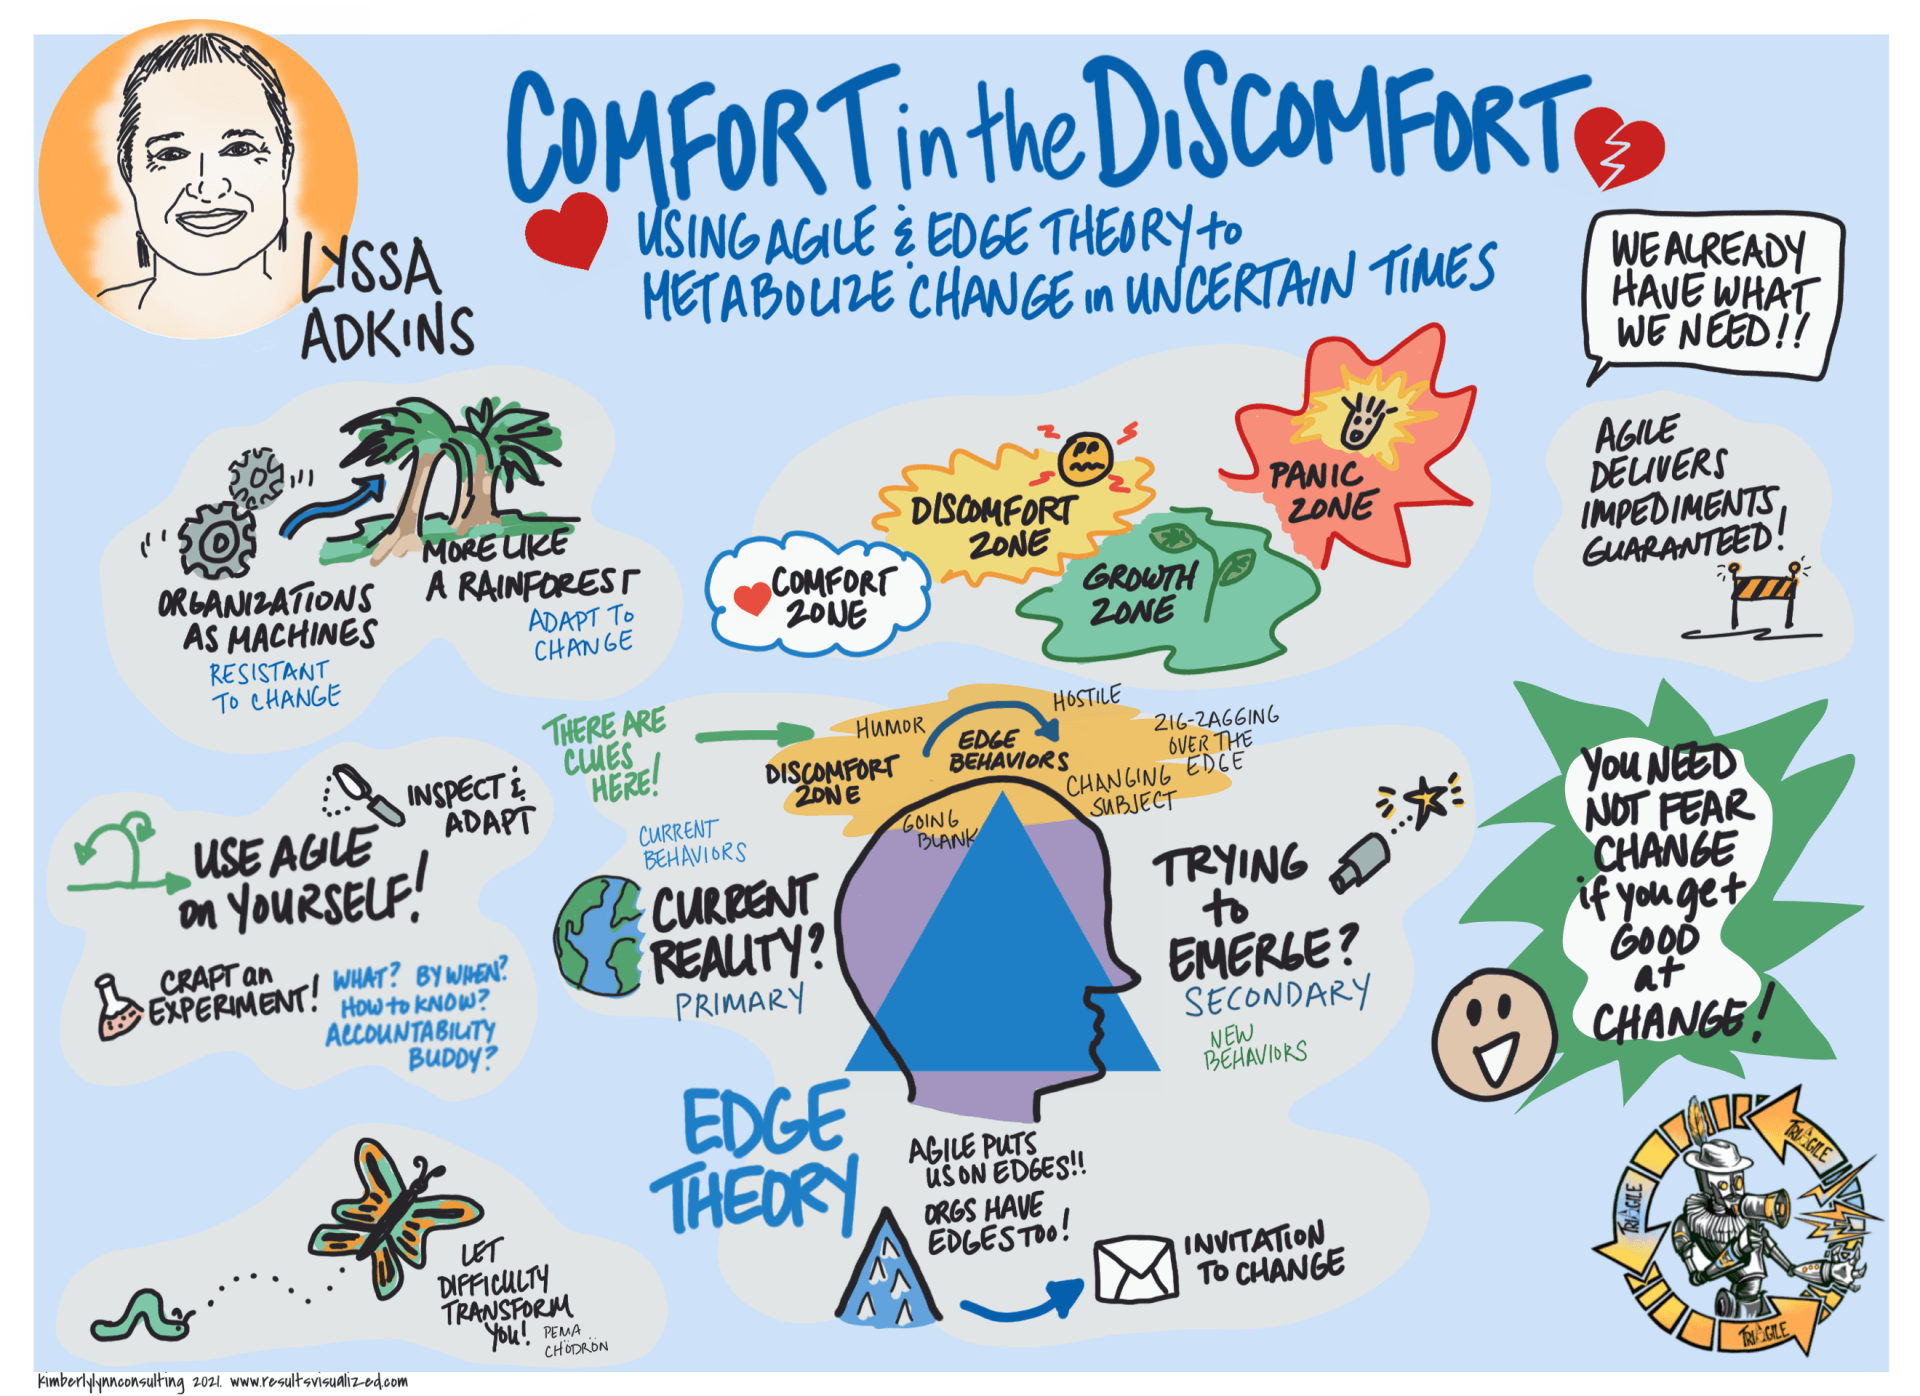 COMFORT in the DISCOMFORT
USING AGILE & EDGE THEORY to
METABOLIZE CHANGE in UNCERTAIN TIMES
LYSSA
ADKINS
WE ALREADY
HAVE WHAT
WE NEED!!
ORGANIZATIONS
AS MACHINES
RESISTANT
TO CHANGE
MORE LIKE
A RAINFOREST
ADAPT TO
CHANGE
COMFORT
ZONE
DISCOMFORT
ZONE
GROWTH
ZONE
PANIC
ZONE
AGILE
DELIVERS
IMPEDIMENTS
GUARANTEED!
INSPECT &
ADAPT
USE AGILE
on YOURSELF!
CRAFT an
EXPERIMENT!
WHAT? BY WHEN?
HOW to KNOW?
ACCOUNTABILITY
BUDDY?
THERE ARE
CLUES
HERE!
DISCOMFORT
ZONE
HUMOR
EDGE
BEHAVIORS
HOSTILE
ZIG-ZAGGING
OVER THE
EDGE
CHANGING
SUBJECT
GOING
BLANK
CURRENT
BEHAVIORS
CURRENT
REALITY?
PRIMARY
TRYING
to
EMERGE?
SECONDARY
NEW
BEHAVIORS
YOU NEED
NOT FEAR
CHANGE
if you get
GOOD
at
CHANGE!
EDGE
THEORY
AGILE PUTS
US ON EDGES!!
ORGS HAVE
EDGES TOO!
INVITATION
TO CHANGE
LET
DIFFICULTY
TRANSFORM
YOU!
PEMA
CHÖDRÖN
TRIAGILE
TRIAGILE
TRIAGILE
kimberlylynnconsulting 2021. www.resultsvisualized.com